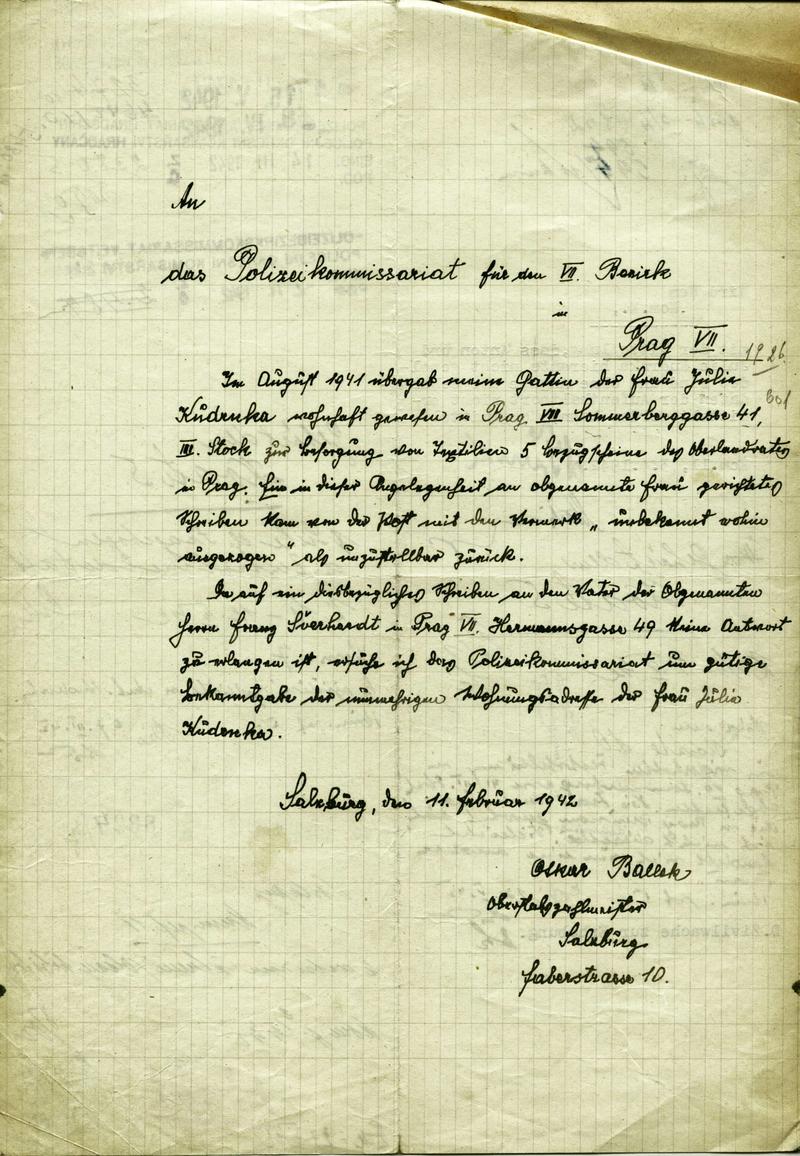 An
das Polizeikommissariat für den VII. Bezirk
in
Prag VII.
Im August 1941 übergab meine Gattin der Frau Julie
Kudrnka wohnhaft gewesen in Prag VII Sommerberggasse 41,
III. Stock zur Besorgung von Textilien 5 Bezugscheine des Oberlandrates
in Prag. Ein in dieser Angelegenheit an obgenannte Frau gerichtetes
Schreiben kam von der Post mit den Vermerk „unbekannt wohin
ausgezogen" als unzustellbar zurück.
Da auf ein diesbezügliches Schreiben an den Vater der Obgenannten
Herrn Franz Sverhardt in Prag VII. Hermannsgasse 49 keine Antwort
zu erlangen ist, ersuche ich das Polizeikommissariat um gütige
Bekanntgabe der nunmehrigen Wohnungsadresse der Frau Julie
Kudrnka.
Salzburg, den 11. Februar 1942
Oskar Ballek
Oberstabszahlmeister
Salzburg
Faberstrasse 10.